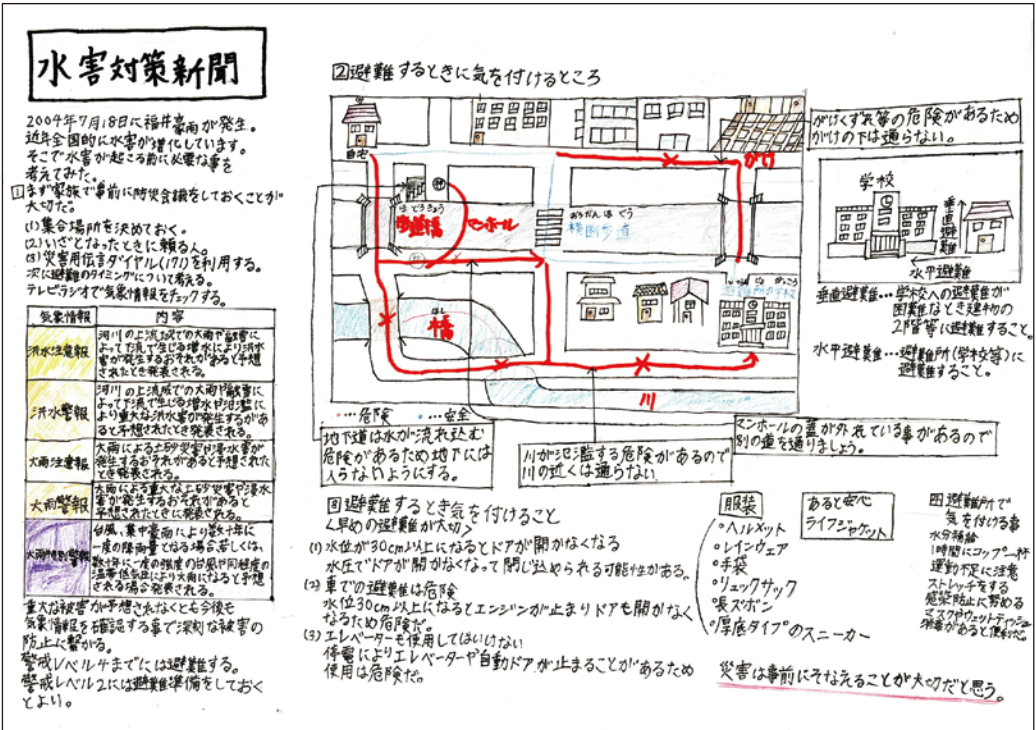 水害対策新聞
2004年7月18日に福井豪雨が発生。
近年全国的に水害が増化しています。
そこで水害が起こる前に必要な事を
考えてみた。
1 まず家族で事前に防災会議をしておくことが
大切だ。
(1)集合場所を決めておく。
(2)いざとなったときに頼る人。
(3)災害用伝言ダイヤル(171)を利用する。
次に避難のタイミングについて考える。
テレビラジオで気象情報をチェックする。
気象情報 内容
洪水注意報
河川の上流域での大雨や融雪に
よって下流で生じる増水により洪水
害が発生するおそれがあると予想
されたとき発表される。
洪水警報
河川の上流域での大雨や融雪に
よって下流で生じる増水や氾濫に
より重大な洪水害が発生するがあ
ると予想されたとき発表される。
大雨注意報
大雨による土砂災害や浸水害が
発生するおそれがあると予想された
とき発表される。
大雨警報
大雨による重大な土砂災害や浸水
害が発生するおそれがあると
予想されたときに発表される。
大雨特別警報
台風、集中豪雨により数十年に
一度の降雨量となる場合若しくは、
数十年に一度の強度の台風や同程度の
温帯低気圧により大雨になると予想
される場合発表される。
重大な被害が予想されなくとも今後も
気象情報を確認する事で深刻な被害の
防止に繋がる。
警戒レベル4までには避難する。
警戒レベル2には避難準備をしておく
とよい。
2 避難するときに気を付けるところ
自宅
がけ
ほどうきょう
歩道橋
マンホール
おうだんほどう
横断歩道
はし
橋
避難所の学校
川
・…危険 ・…安全
がけくずれ等の危険があるため
がけの下は通らない。
学校
垂直避難
水平避難
垂直避難…学校への避難が
困難なとき建物の
2階等に避難すること。
水平避難…避難所(学校等)に
避難すること。
地下道は水が流れ込む
危険があるため地下には
入らないようにする。
川が氾濫する危険があるので
川の近くは通らない
マンホールの蓋が外れている事があるので
別の道を通りましょう。
3 避難するとき気を付けること
<早めの避難が大切>
(1)水位が30cm以上になるとドアが開かなくなる
水圧でドアが開かなくなって閉じ込められる可能性がある。
(2)車での避難は危険
水位30cm以上になるとエンジンが止まりドアも開かなく
なるため危険だ。
(3)エレベーターも使用してはいけない
停電によりエレベーターや自動ドアが止まることがあるため
使用は危険だ。
服装
○ヘルメット
○レインウェア
○手袋
○リュックサック
○長ズボン
○厚底タイプのスニーカー
あると安心
ライフジャケット
4 避難所で
気を付ける事
水分補給
1時間にコップ一杯
運動不足に注意
ストレッチをする
感染防止に努める
マスクやウェットティッシュ
消毒があると便利だ。
災害は事前にそなえることが大切だと思う。